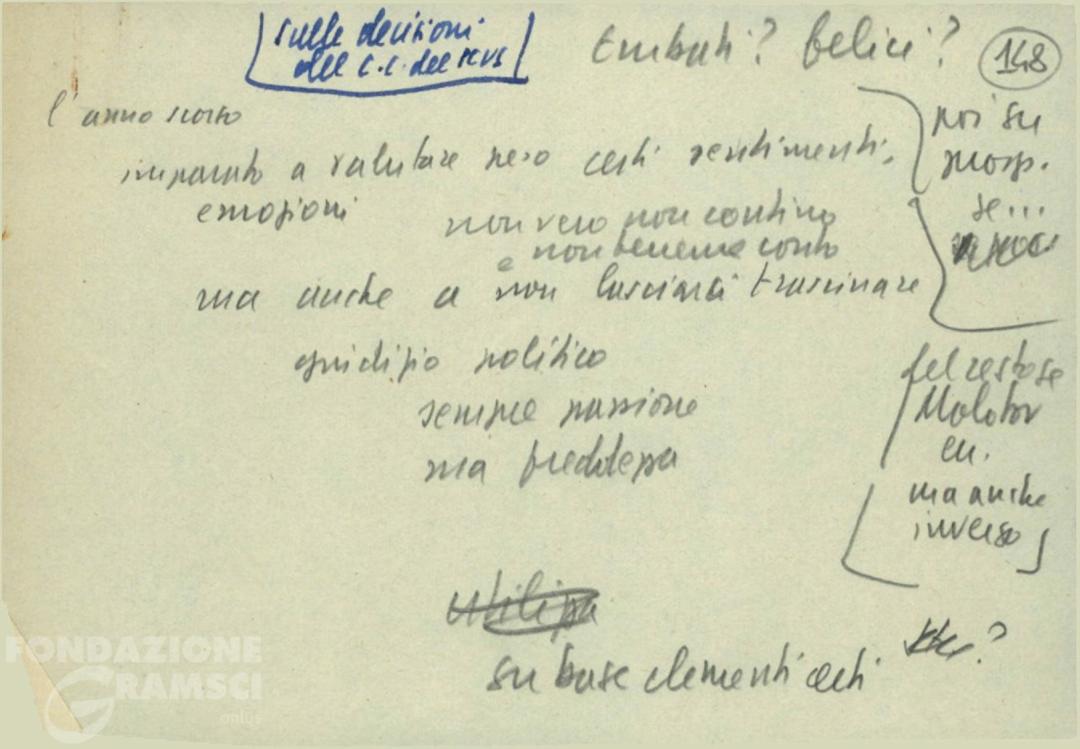 sulle decisioni
del C.C. del PCUS
Turbati? felici?
148
l'anno scorso
imparato a valutare peso certi sentimenti,
emozioni
non vero non contino
e non tenerne conto
ma anche a non lasciarci trascinare
giudizio politico
sempre passione
ma freddezza
poi su
prosp.
se...
del resto se
Molotov
ecc.
ma anche
inverso
su base elementi certi
FONDAZIONE
GRAMSCI
onlus